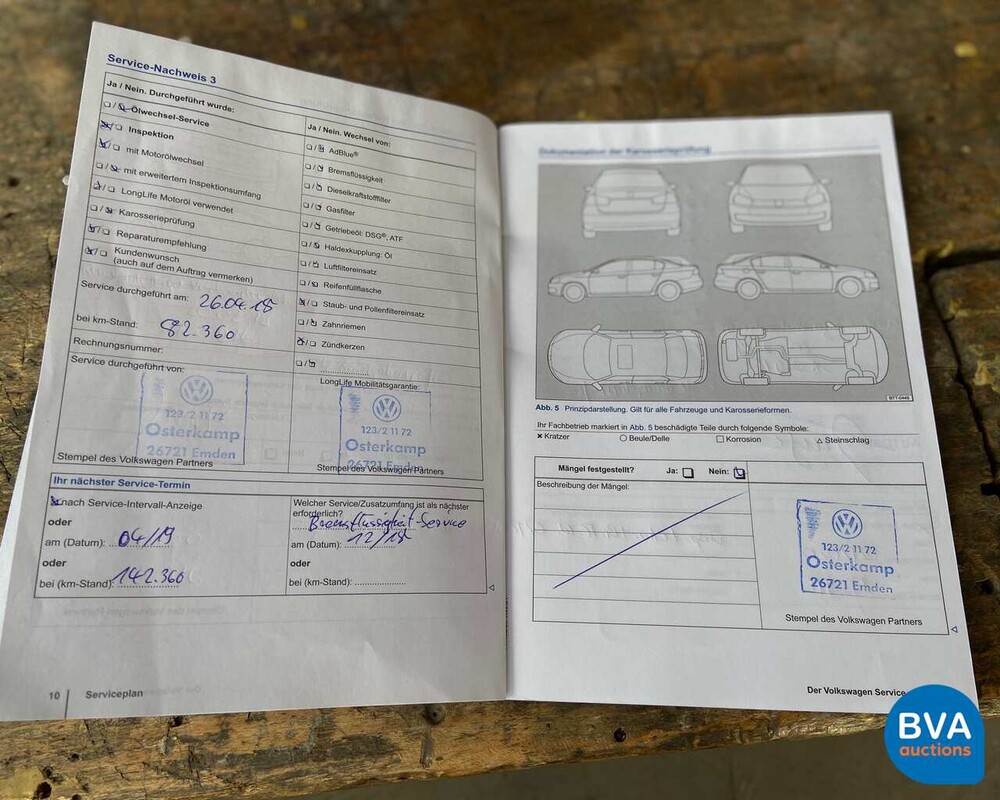 Service-Nachweis 3
Ja / Nein. Durchgeführt wurde:
Ölwechsel-Service
Inspektion
mit Motorölwechsel
mit erweitertem Inspektionsumfang
LongLife Motoröl verwendet
Karosserieprüfung
Reparaturempfehlung
Kundenwunsch
(auch auf dem Auftrag vermerken)
Service durchgeführt am: 26.04.18
bei km-Stand: 82.360
Rechnungsnummer:
Service durchgeführt von:
123/2 11 72
Osterkamp
26721 Emden
Stempel des Volkswagen Partners
Ja / Nein. Wechsel von:
AdBlue®
Bremsflüssigkeit
Dieselkraftstofffilter
Gasfilter
Getriebeöl: DSG®, ATF
Haldexkupplung: Öl
Luftfiltereinsatz
Reifenfüllflasche
Staub- und Pollenfiltereinsatz
Zahnriemen
Zündkerzen
LongLife Mobilitätsgarantie:
123/2 11 72
Osterkamp
26721 Emden
Stempel des Volkswagen Partners
Ihr nächster Service-Termin
nach Service-Intervall-Anzeige
oder
am (Datum): 04/19
oder
bei (km-Stand): 142.360
Welcher Service/Zusatzumfang ist als nächster
erforderlich?
Bremsflüssigkeit-Service
am (Datum): 12/18
oder
bei (km-Stand):
10 | Serviceplan
Dokumentation der Karosserieprüfung
B7T-0446
Abb. 5 Prinzipdarstellung. Gilt für alle Fahrzeuge und Karosserieformen.
Ihr Fachbetrieb markiert in Abb. 5 beschädigte Teile durch folgende Symbole:
× Kratzer ○ Beule/Delle □ Korrosion △ Steinschlag
Mängel festgestellt? Ja: Nein:
Beschreibung der Mängel:
123/2 11 72
Osterkamp
26721 Emden
Stempel des Volkswagen Partners
Der Volkswagen Service
BVA
auctions